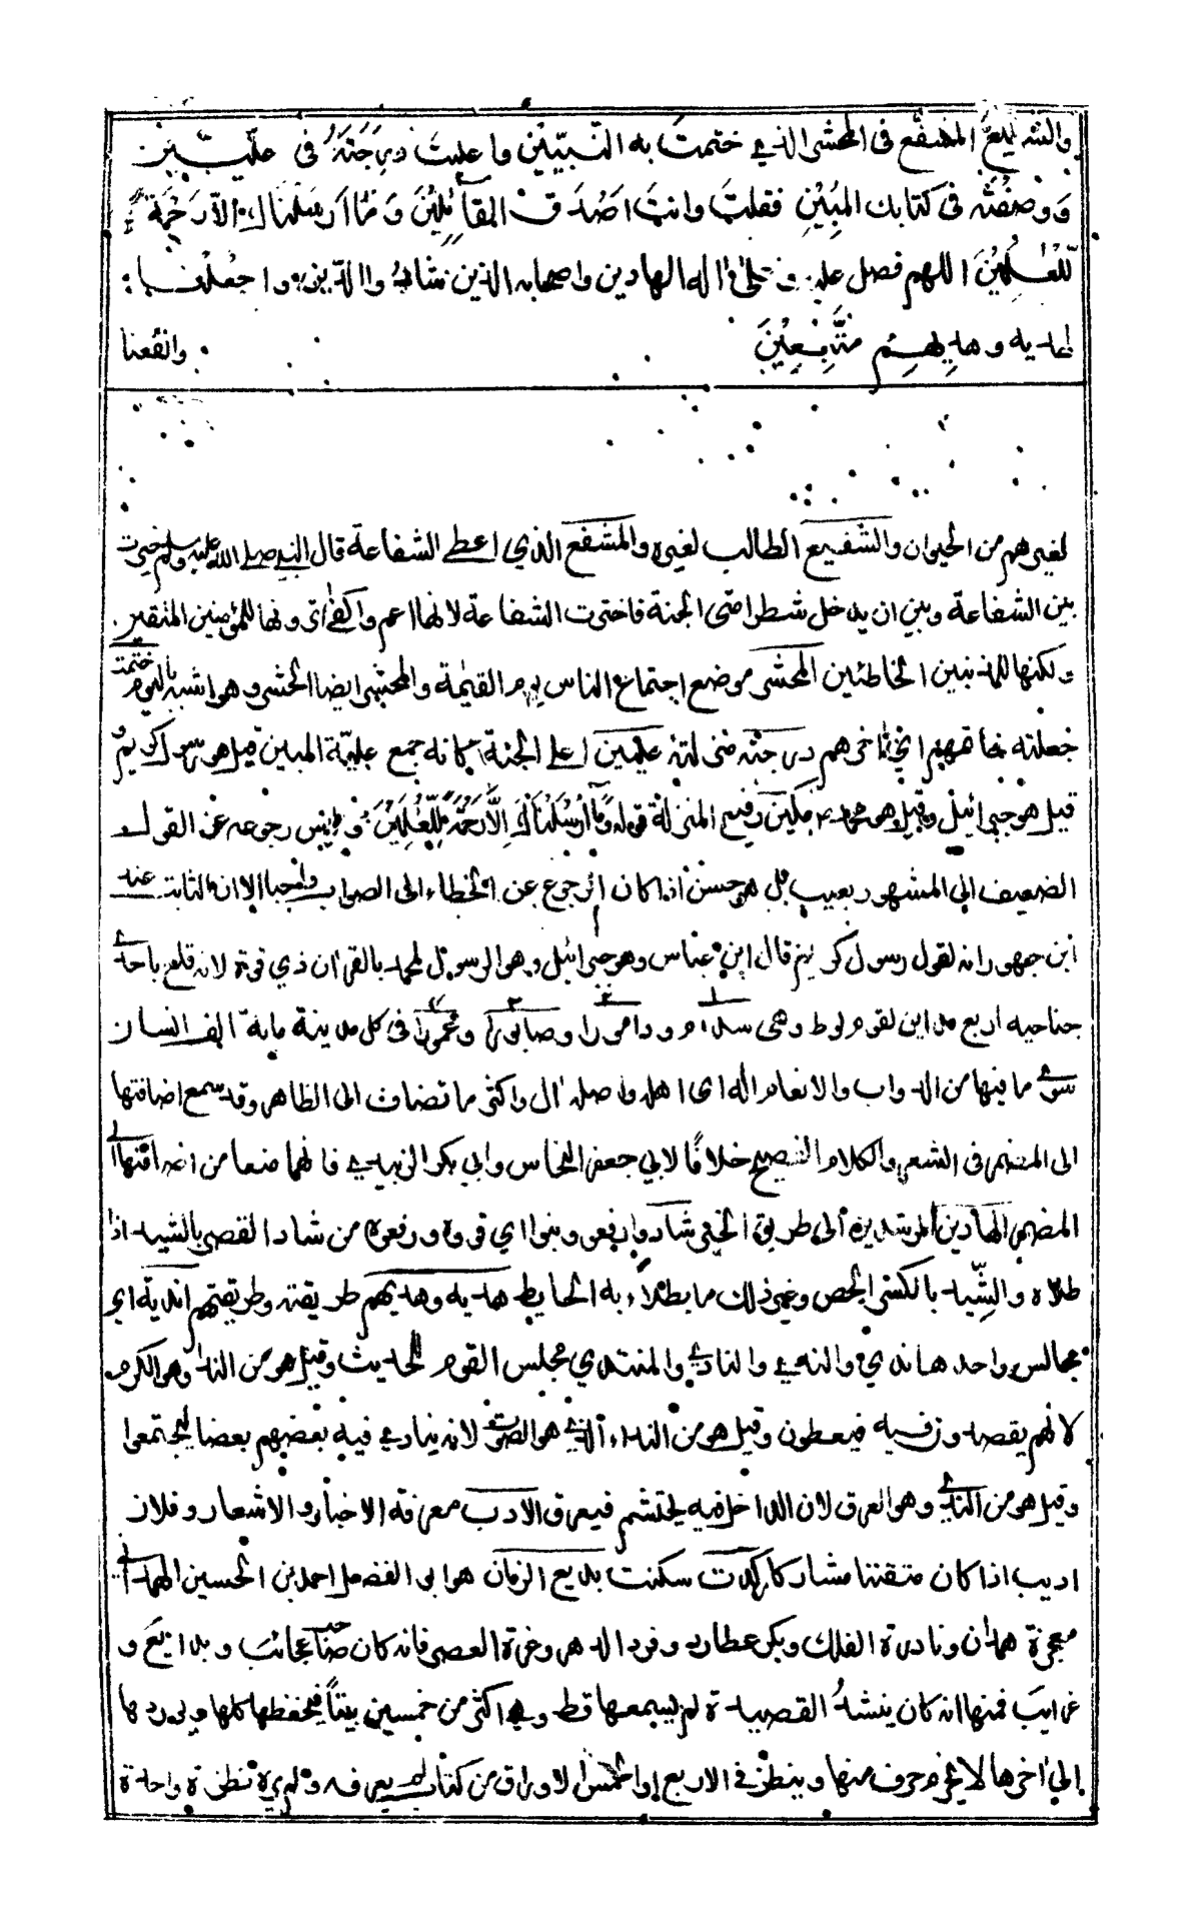 والشفيع المشفع في المحشر الذي ختمت به النبيّين واعليت درجته في علّيّين
ووصفته في كتابك المبين فقلت وانت اصدق القائلين وما ارسلناك الّا رحمة
للعٰلمين اللهم فصل عليه وعلى اله الهادين واصحابه الذين شادوا الدين واجعلنا
لهديه وهديهم متّبعين وانفعنا
لغيرهم من الحيوان والشفيع الطالب لغيره والمشفع الذي اعطي الشفاعة قال النبي صلى الله عليه وسلم خيرت
بين الشفاعة وبين ان يدخل شطر امتى الجنة فاخترت الشفاعة لانها اعم واكفى اترونها للمؤمنين المتقين
ولكنها للمذنبين الخاطئين المحشر موضع اجتماع الناس يوم القيٰمة والمحشر ايضا الحشر وهو اشبه باليوم ختمت
جعلته خاتمهم اي اخرهم درجته منزلته عليين اعلى الجنة كانه جمع علية المبين قيل هو رسول كريم و
قيل هو جبرائيل وقيل هو محمد مكين رفيع المنزلة قوله وما ارسلناك الا رحمة للعلمين وليس رجوعه عن القول
الضعيف الى المشهور بعيب بل هو حسن اذا كان الرجوع عن الخطاء الى الصواب واجبا الا ان الثابت عند
ابن جهور انه لقول رسول كريم قال ابن عباس وهو جبرائيل وهو الرسول لمحمد بالقران ذي قوة لانه قلع باحدى
جناحيه اربع مداين لقوم لوط وهى سدوم ودامورا وصابورا وعمورا في كل مدينة ماية الف انسان
سوى ما فيها من الدواب والانعام اله اى اهله واصله ال واكثر ما تضاف الى الظاهر وقد سمع اضافتها
الى المضمر في الشعر والكلام الفصيح خلافًا لابي جعفر النحاس وابي بكر الزبيدي فانهما منعا من اضافتها الى
المضمر الهادين المرشدين الى طريق الحق شادوا رفعوا وبنوا اي قووه ورفعوه من شاد القصر بالشيد اذا
طلاه والشّيد بالكسر الجص وغير ذلك مما يطلاء به الحايط هديه وهديهم طريقته وطريقتهم اندية اي
مجالس واحدها ندي والندي والنادي والمنتدي مجلس القوم للحديث وقيل هو من الندا وهو الكرم
لانهم يقصدون فيه فيعطون وقيل هو من النداء الذي هو الصوت لانه ينادي فيه بعضهم بعضا ليجتمعوا
وقيل هو من الندى وهو العرق لان الداخل فيه يحتشم فيعرق الادب معرفة الاخبار والاشعار وفلان
اديب اذا كان متقننا مشاركا ركدت سكنت بديع الزمان هو ابو الفضل احمد بن الحسين الهمداني
معجزة همدان ونادرة الفلك وبكر عطارد وفرد الدهر وغرة العصر فانه كان صاحب عجائب وبدايع و
غرايب فمنها انه كان ينشد القصيدة لم يسمعها قط وهي اكثر من خمسين بيتًا فيحفظها كلها ويوردها
الى اخرها لا يخرم حرف منها وينظر في الاربع او الخمس الاوراق من كتاب لم يعرفه ولم يره نظرة واحدة